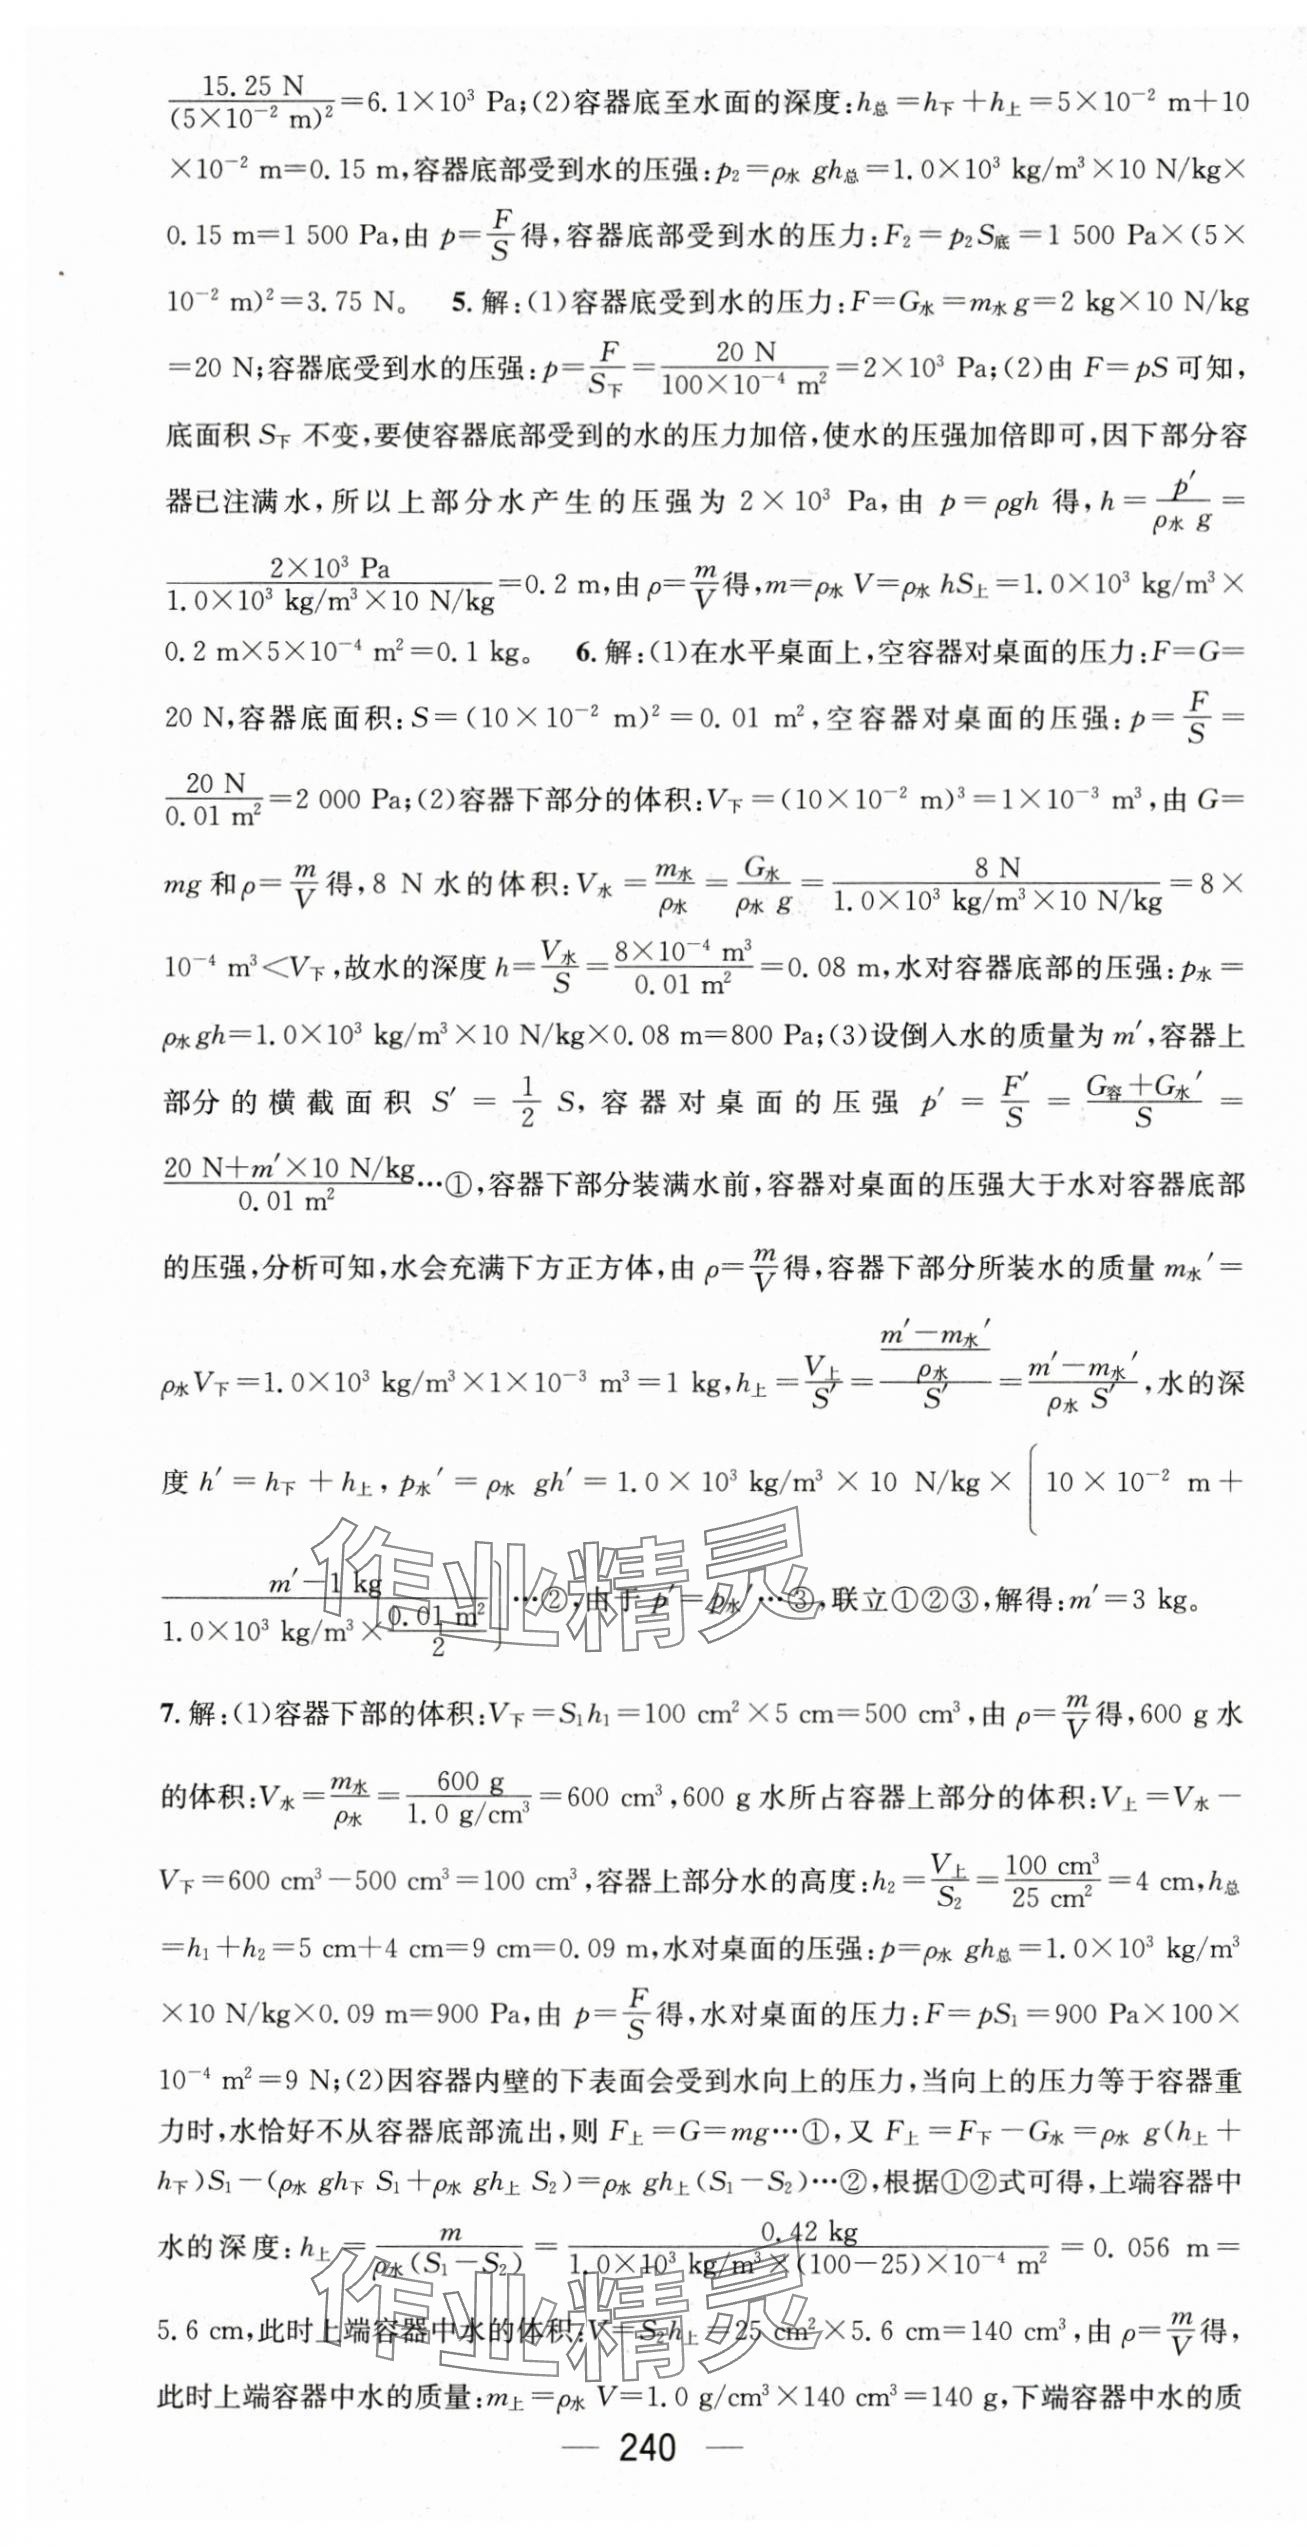 15.25 N/(5×10⁻² m)²=6.1×10³ Pa;(2)容器底至水面的深度:h总=h下+h上=5×10⁻² m+10
×10⁻² m=0.15 m,容器底部受到水的压强:p₂=ρ水 gh总=1.0×10³ kg/m³×10 N/kg×
0.15 m=1 500 Pa,由 p=F/S得,容器底部受到水的压力:F₂=p₂S底=1 500 Pa×(5×
10⁻² m)²=3.75 N。 5.解:(1)容器底受到水的压力:F=G水=m水g=2 kg×10 N/kg
=20 N;容器底受到水的压强:p=F/S下=20 N/(100×10⁻⁴ m²)=2×10³ Pa;(2)由 F=pS 可知,
底面积 S下 不变,要使容器底部受到的水的压力加倍,使水的压强加倍即可,因下部分容
器已注满水,所以上部分水产生的压强为 2×10³ Pa,由 p=ρgh 得,h=p′/(ρ水 g)=
2×10³ Pa/(1.0×10³ kg/m³×10 N/kg)=0.2 m,由ρ=m/V得,m=ρ水V=ρ水 hS上=1.0×10³ kg/m³×
0.2 m×5×10⁻⁴ m²=0.1 kg。 6.解:(1)在水平桌面上,空容器对桌面的压力:F=G=
20 N,容器底面积:S=(10×10⁻² m)²=0.01 m²,空容器对桌面的压强:p=F/S=
20 N/0.01 m²=2 000 Pa;(2)容器下部分的体积:V下=(10×10⁻² m)³=1×10⁻³ m³,由 G=
mg 和ρ=m/V得,8 N 水的体积:V水=m水/ρ水=G水/(ρ水 g)=8 N/(1.0×10³ kg/m³×10 N/kg)=8×
10⁻⁴ m³<V下,故水的深度 h=V水/S=8×10⁻⁴ m³/0.01 m²=0.08 m,水对容器底部的压强:p水=
ρ水gh=1.0×10³ kg/m³×10 N/kg×0.08 m=800 Pa;(3)设倒入水的质量为 m′,容器上
部分的横截面积 S′=1/2 S,容器对桌面的压强 p′=F′/S=(G容+G水′)/S=
(20 N+m′×10 N/kg)/0.01 m²…①,容器下部分装满水前,容器对桌面的压强大于水对容器底部
的压强,分析可知,水会充满下方正方体,由ρ=m/V得,容器下部分所装水的质量 m水′=
ρ水V下=1.0×10³ kg/m³×1×10⁻³ m³=1 kg,h上=V上/S′=((m′−m水′)/ρ水)/S′=(m′−m水′)/(ρ水 S′),水的深
度 h′=h下+h上,p水′=ρ水 gh′=1.0×10³ kg/m³×10 N/kg×(10×10⁻² m+
(m′−1 kg)/(1.0×10³ kg/m³×0.01 m²/2))…②,由于 p′=p水′…③,联立①②③,解得:m′=3 kg。
7.解:(1)容器下部的体积:V下=S₁h₁=100 cm²×5 cm=500 cm³,由ρ=m/V得,600 g 水
的体积:V水=m水/ρ水=600 g/(1.0 g/cm³)=600 cm³,600 g 水所占容器上部分的体积:V上=V水−
V下=600 cm³−500 cm³=100 cm³,容器上部分水的高度:h₂=V上/S₂=100 cm³/25 cm²=4 cm,h总
=h₁+h₂=5 cm+4 cm=9 cm=0.09 m,水对桌面的压强:p=ρ水 gh总=1.0×10³ kg/m³
×10 N/kg×0.09 m=900 Pa,由 p=F/S得,水对桌面的压力:F=pS₁=900 Pa×100×
10⁻⁴ m²=9 N;(2)因容器内壁的下表面会受到水向上的压力,当向上的压力等于容器重
力时,水恰好不从容器底部流出,则 F上=G=mg…①,又 F上=F下−G水=ρ水 g(h上+
h下)S₁−(ρ水 gh下 S₁+ρ水 gh上 S₂)=ρ水 gh上(S₁−S₂)…②,根据①②式可得,上端容器中
水的深度:h上=m/(ρ水(S₁−S₂))=0.42 kg/(1.0×10³ kg/m³×(100−25)×10⁻⁴ m²)=0.056 m=
5.6 cm,此时上端容器中水的体积:V=S₂h上=25 cm²×5.6 cm=140 cm³,由ρ=m/V得,
此时上端容器中水的质量:m上=ρ水 V=1.0 g/cm³×140 cm³=140 g,下端容器中水的质
— 240 —
作业精灵
作业精灵